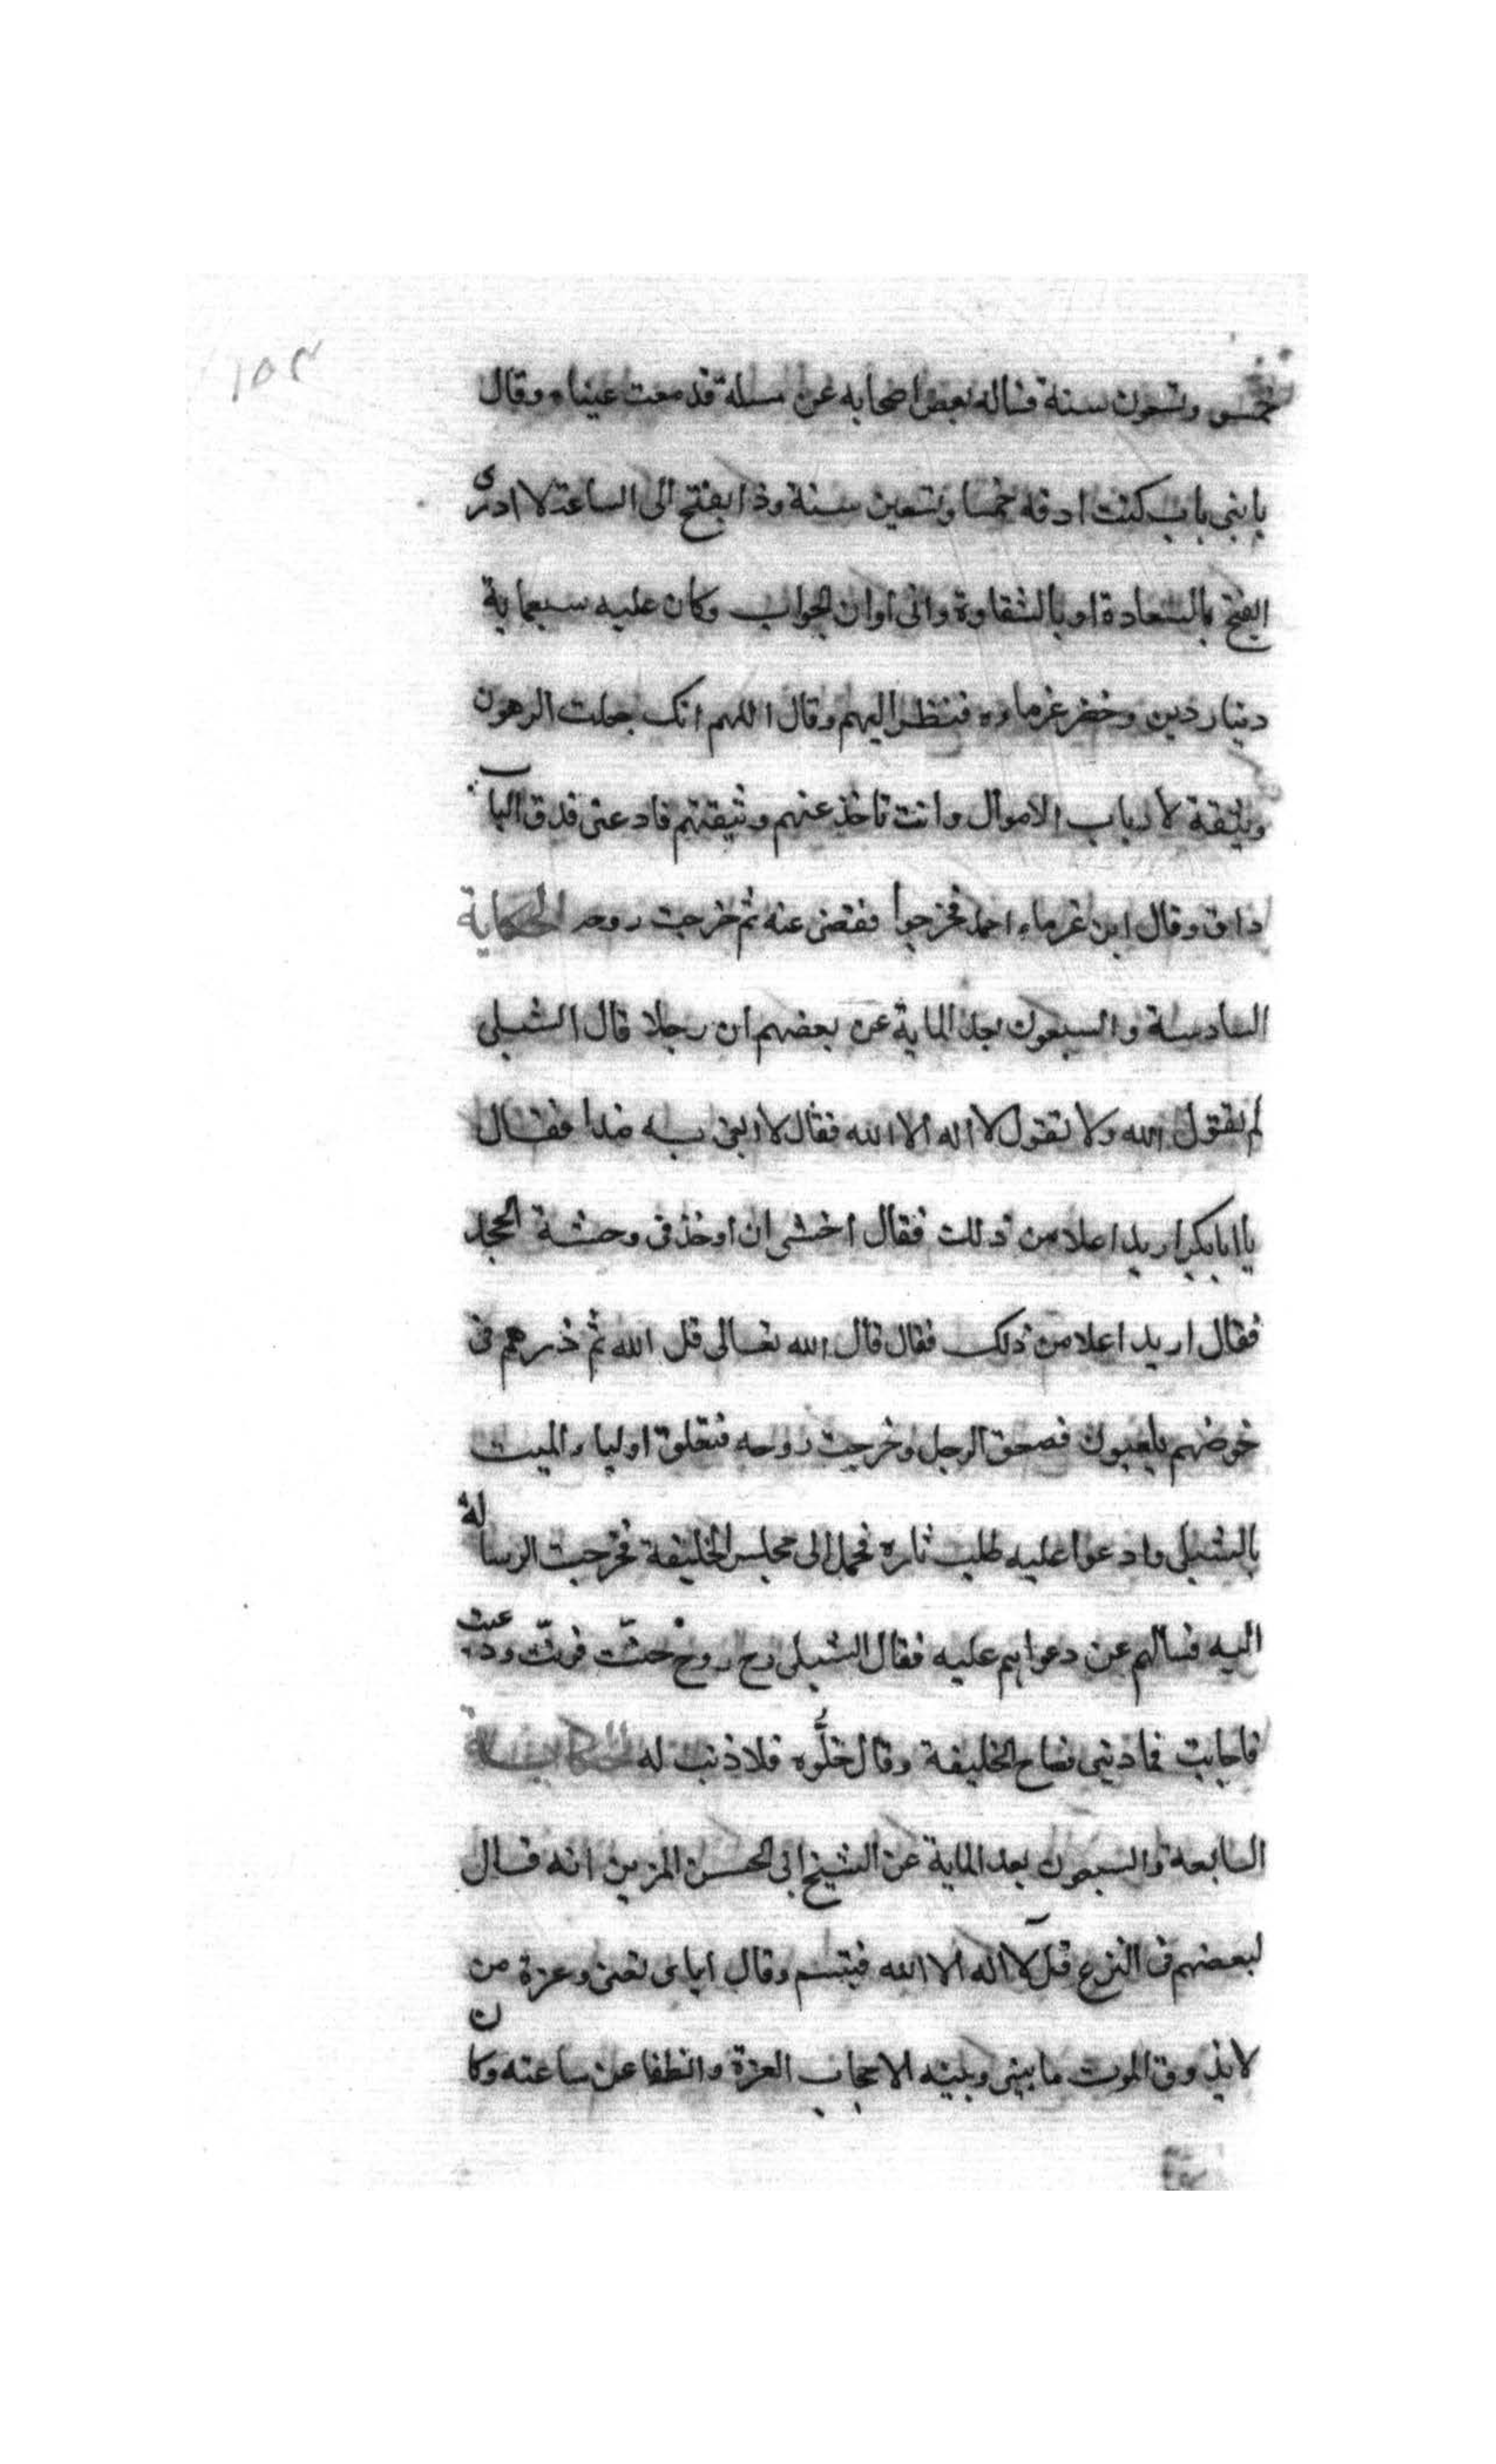 ١٥٢
خمس وتسعون سنة فساله بعض اصحابه عن مسلة فدمعت عيناه وقال
يا بنى باب كنت ادقه خمسا وتسعين سنة وذا يفتح الى الساعة لا ادرى
ايفتح بالسعادة او بالشقاوة وانى اوان الجواب وكان عليه سبعماية
دينار دين وحضر غرماوه فنظر اليهم وقال اللهم انك جعلت الرهون
وثيقة لارباب الاموال وانت تاخذ عنهم وثيقتهم فاد عنى فدق الباب
داق وقال اين غرماء احمد فخرجوا فقضى عنه ثم خرجت روحه الحكاية
السادسة والسبعون بعد الماية عن بعضهم ان رجلا قال الشبلى
لم تقول الله ولا تقول لا اله الا الله فقال لا ابغى به ضدا فقال
يا ابا بكر اريد اعلا من ذلك فقال اخشى ان اوخذ فى وحشة الجحد
فقال اريد اعلا من ذلك فقال قال الله تعالى قل الله ثم ذرهم فى
خوضهم يلعبون فصعق الرجل وخرجت روحه فتعلق اولياء الميت
بالشبلى وادعوا عليه طلب ثاره فحمل الى مجلس الخليفة فخرجت الرسالة
اليه فسالهم عن دعواهم عليه فقال الشبلى رح روح حنّت فرنّت ودعيت
فاجابت فما ذنبى فصاح الخليفة وقال خلّوه فلا ذنب له الحكاية
السابعة والسبعون بعد الماية عن الشيخ ابى الحسن المزين انه قال
لبعضهم فى النزع قل لا اله الا الله فتبسم وقال اياى تعنى وعزة من
لا يذوق الموت ما بينى وبينه الا حجاب العزة وانطفا عن ساعته وكان